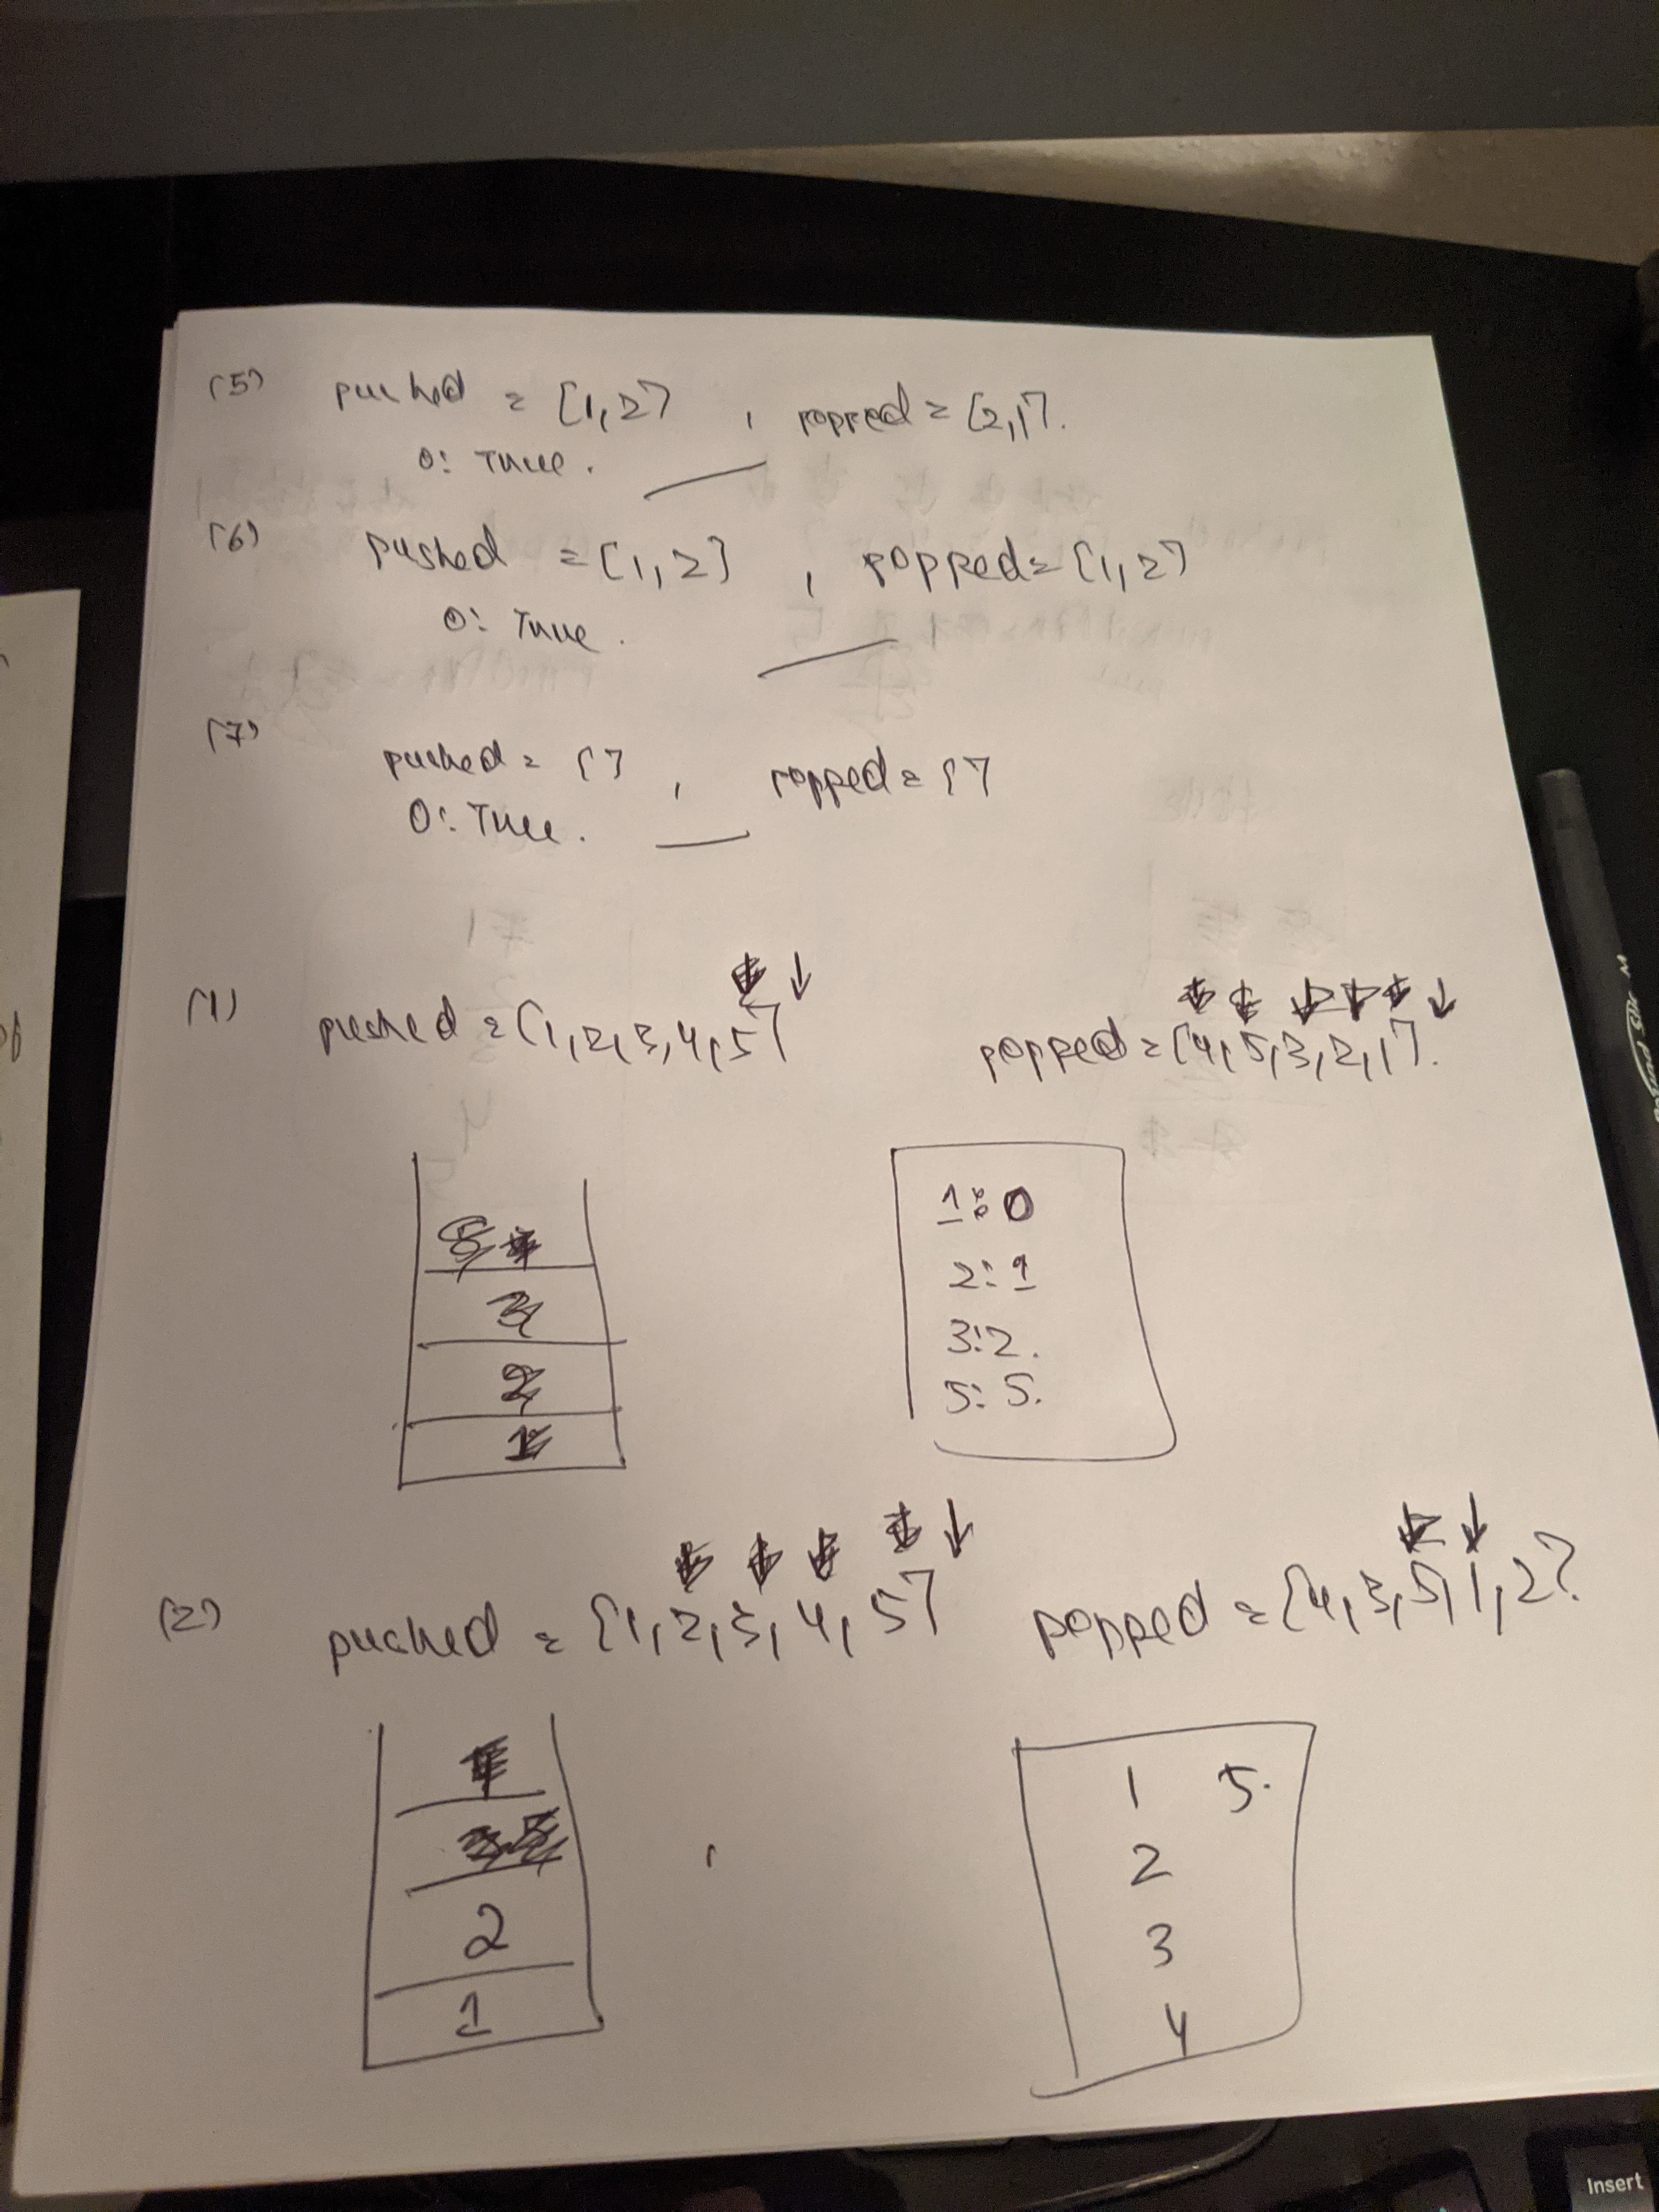 (5) pushed = [1,2] , popped = [2,1].
O: True.
(6) pushed = [1,2] , popped = [1,2]
O: True.
(7)
pushed = [] , popped = []
O: True.
(1) pushed = [1,2,3,4,5] popped = [4,5,3,2,1].
3
2
1
1:0
2:1
3:2.
5: 5.
(2) pushed = [1,2,3,4,5] popped = [4,3,5,1,2]
2
1
1 5.
2
3
4
Insert